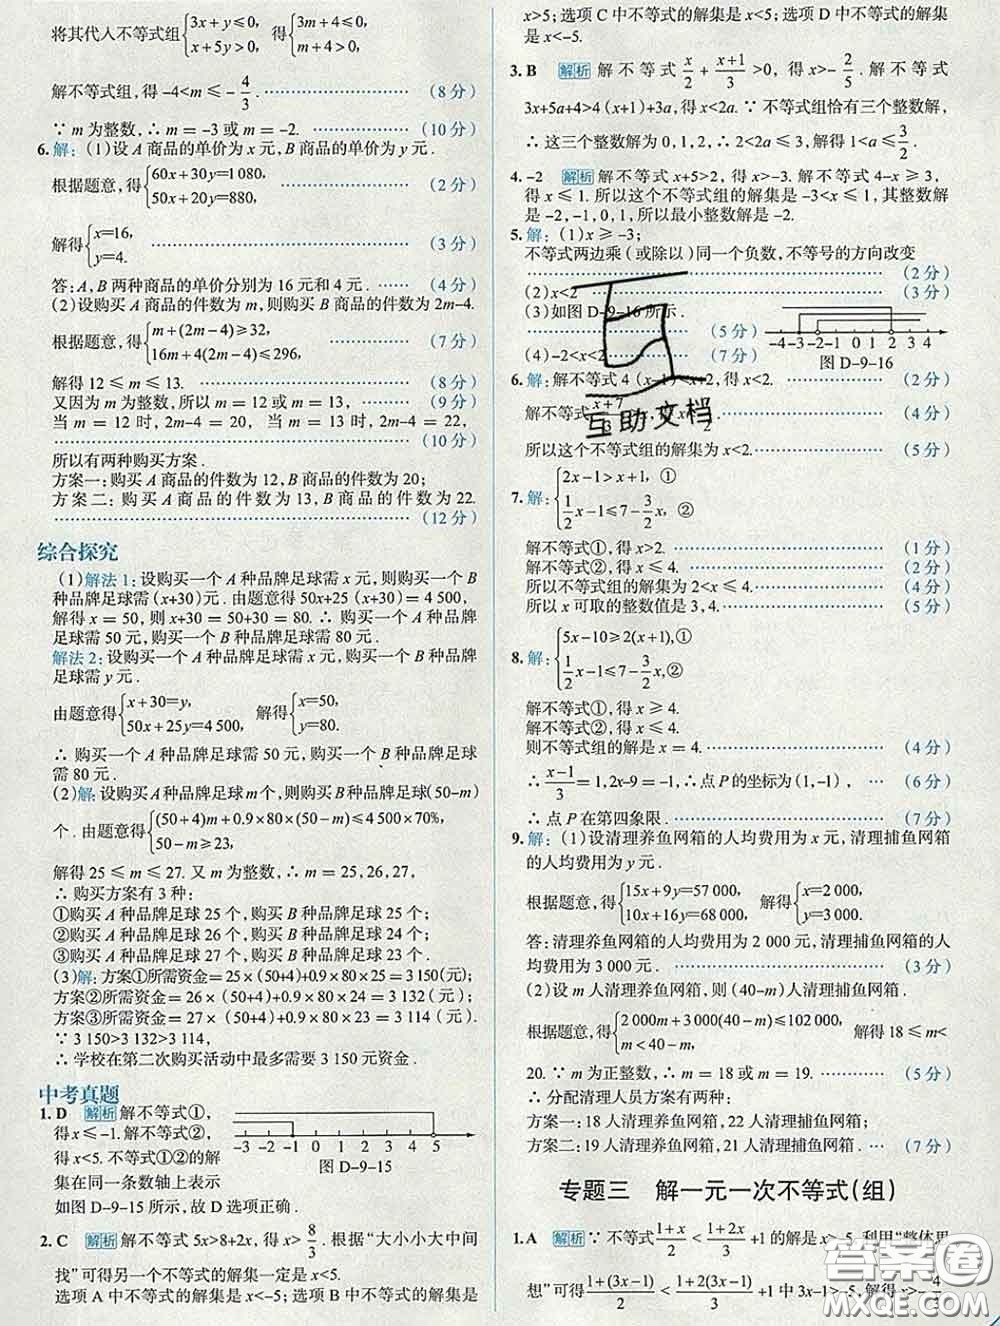 将其代入不等式组{3x+y≤0, x+5y>0, 得{3m+4≤0, m+4>0,
解不等式组,得-4<m≤-4/3. (8分)
∵m为整数,∴m=-3或m=-2. (10分)
6.解:(1)设A商品的单价为x元,B商品的单价为y元.
根据题意,得{60x+30y=1080, 50x+20y=880, (2分)
解得{x=16, y=4. (3分)
答:A,B两种商品的单价分别为16元和4元. (4分)
(2)设购买A商品的件数为m,则购买B商品的件数为2m-4.
根据题意,得{m+(2m-4)≥32, 16m+4(2m-4)≤296, (7分)
解得12≤m≤13. (8分)
又因为m为整数,所以m=12或m=13, (9分)
当m=12时,2m-4=20,当m=13时,2m-4=22,
(10分)
所以有两种购买方案.
方案一:购买A商品的件数为12,B商品的件数为20;
方案二:购买A商品的件数为13,B商品的件数为22.
(12分)
综合探究
(1)解法1:设购买一个A种品牌足球需x元,则购买一个B
种品牌足球需(x+30)元.由题意得50x+25(x+30)=4500,
解得x=50,则x+30=50+30=80.∴购买一个A种品牌
足球需50元,购买一个B种品牌足球需80元.
解法2:设购买一个A种品牌足球需x元,购买一个B种品牌
足球需y元.
由题意得{x+30=y, 50x+25y=4500, 解得{x=50, y=80.
∴购买一个A种品牌足球需50元,购买一个B种品牌足球
需80元.
(2)解:设购买A种品牌足球m个,则购买B种品牌足球(50-m)
个.由题意得{(50+4)m+0.9×80×(50-m)≤4500×70%, 50-m≥23,
解得25≤m≤27.又m为整数,∴m=25,26,27,
∴购买方案有3种:
①购买A种品牌足球25个,购买B种品牌足球25个;
②购买A种品牌足球26个,购买B种品牌足球24个;
③购买A种品牌足球27个,购买B种品牌足球23个.
(3)解:方案①所需资金=25×(50+4)+0.9×80×25=3150(元);
方案②所需资金=26×(50+4)+0.9×80×24=3132(元);
方案③所需资金=27×(50+4)+0.9×80×23=3114(元).
∵3150>3132>3114,
∴学校在第二次购买活动中最多需要3150元资金.
中考真题
1.D 解析 解不等式①,
得x≤-1.解不等式②,
得x<5.不等式①②的解
集在同一条数轴上表示
如图D-9-15,故D选项正确.
-3 -2 -1 0 1 2 3 4 5
图D-9-15
2.C 解析 解不等式5x>8+2x,得x>8/3.根据“大小小大中间
找”可得另一个不等式的解集一定是x<5.
选项A中不等式的解集是x<-5;选项B中不等式的解集是
x>5;选项C中不等式的解集是x<5;选项D中不等式的解集
是x<-5.
3.B 解析 解不等式x/2+(x+1)/3>0,得x>-2/5.解不等式
3x+5a+4>4(x+1)+3a,得x<2a.∵不等式组恰有三个整数解,
∴这三个整数解为0,1,2,∴2<2a≤3,解得1<a≤3/2.
4.-2 解析 解不等式x+5>2,得x>-3.解不等式4-x≥3,
得x≤1.所以这个不等式组的解集是-3<x≤1,其整数解
为-2,-1,0,1,所以最小整数解为-2.
5.解:(1)x≥-3;
不等式两边乘(或除以)同一个负数,不等号的方向改变
(2分)
(2)x<2 (3分)
(3)如图D-9-16所示. (5分)
(4)-2<x<2 (7分)
-4 -3 -2 -1 0 1 2 3 4
图D-9-16
6.解:解不等式4(x-1)<x+2,得x<2. (2分)
解不等式(x+7)/3 (4分)
所以这个不等式组的解集为x<2. (5分)
7.解:{2x-1>x+1,① 1/2x-1≤7-3/2x,②
解不等式①,得x>2. (1分)
解不等式②,得x≤4. (2分)
所以不等式组的解集为2<x≤4. (4分)
所以x可取的整数值是3,4. (5分)
8.解:{5x-10≥2(x+1),① 1/2x-1≤7-3/2x,②
解不等式①,得x≥4.
解不等式②,得x≤4.
则不等式组的解是x=4. (4分)
∴(x-1)/3=1,2x-9=-1,∴点P的坐标为(1,-1), (6分)
∴点P在第四象限. (7分)
9.解:(1)设清理养鱼网箱的人均费用为x元,清理捕鱼网箱
的人均费用为y元.
根据题意,得{15x+9y=57000, 10x+16y=68000, 解得{x=2000, y=3000.
答:清理养鱼网箱的人均费用为2000元,清理捕鱼网箱的人
均费用为3000元. (3分)
(2)设m人清理养鱼网箱,则(40-m)人清理捕鱼网箱.
根据题意,得{2000m+3000(40-m)≤102000, m<40-m, 解得18≤m<
20.∵m为正整数,∴m=18或m=19. (5分)
∴分配清理人员方案有两种:
方案一:18人清理养鱼网箱,22人清理捕鱼网箱;
方案二:19人清理养鱼网箱,21人清理捕鱼网箱. (7分)
专题三 解一元一次不等式(组)
1.A 解析 ∵不等式(1+x)/2<(1+2x)/3+1的解是x>-5,利用“整体思
想”可得(1+(3x-1))/2<(1+2(3x-1))/3+1中3x-1>-5,得x>-4/3
互助文档
答案圈
MXQE.COM